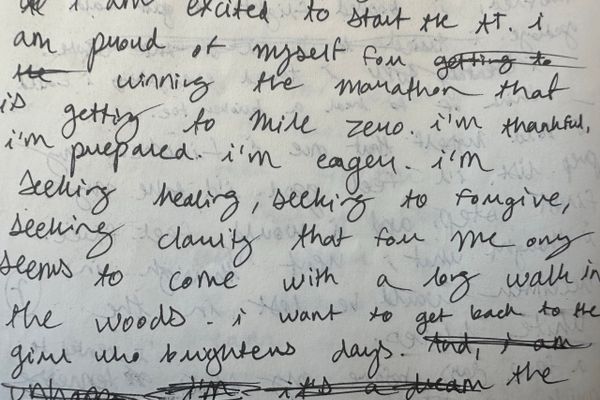 i am excited to start the AT. i
am proud of myself for getting to
the winning the marathon that
is getting to mile zero. i'm thankful,
i'm prepared. i'm eager. i'm
seeking healing, seeking to forgive,
seeking clarity that for me only
seems to come with a long walk in
the woods. i want to get back to the
girl who brightens days. And, i am
i'm it's a dream the